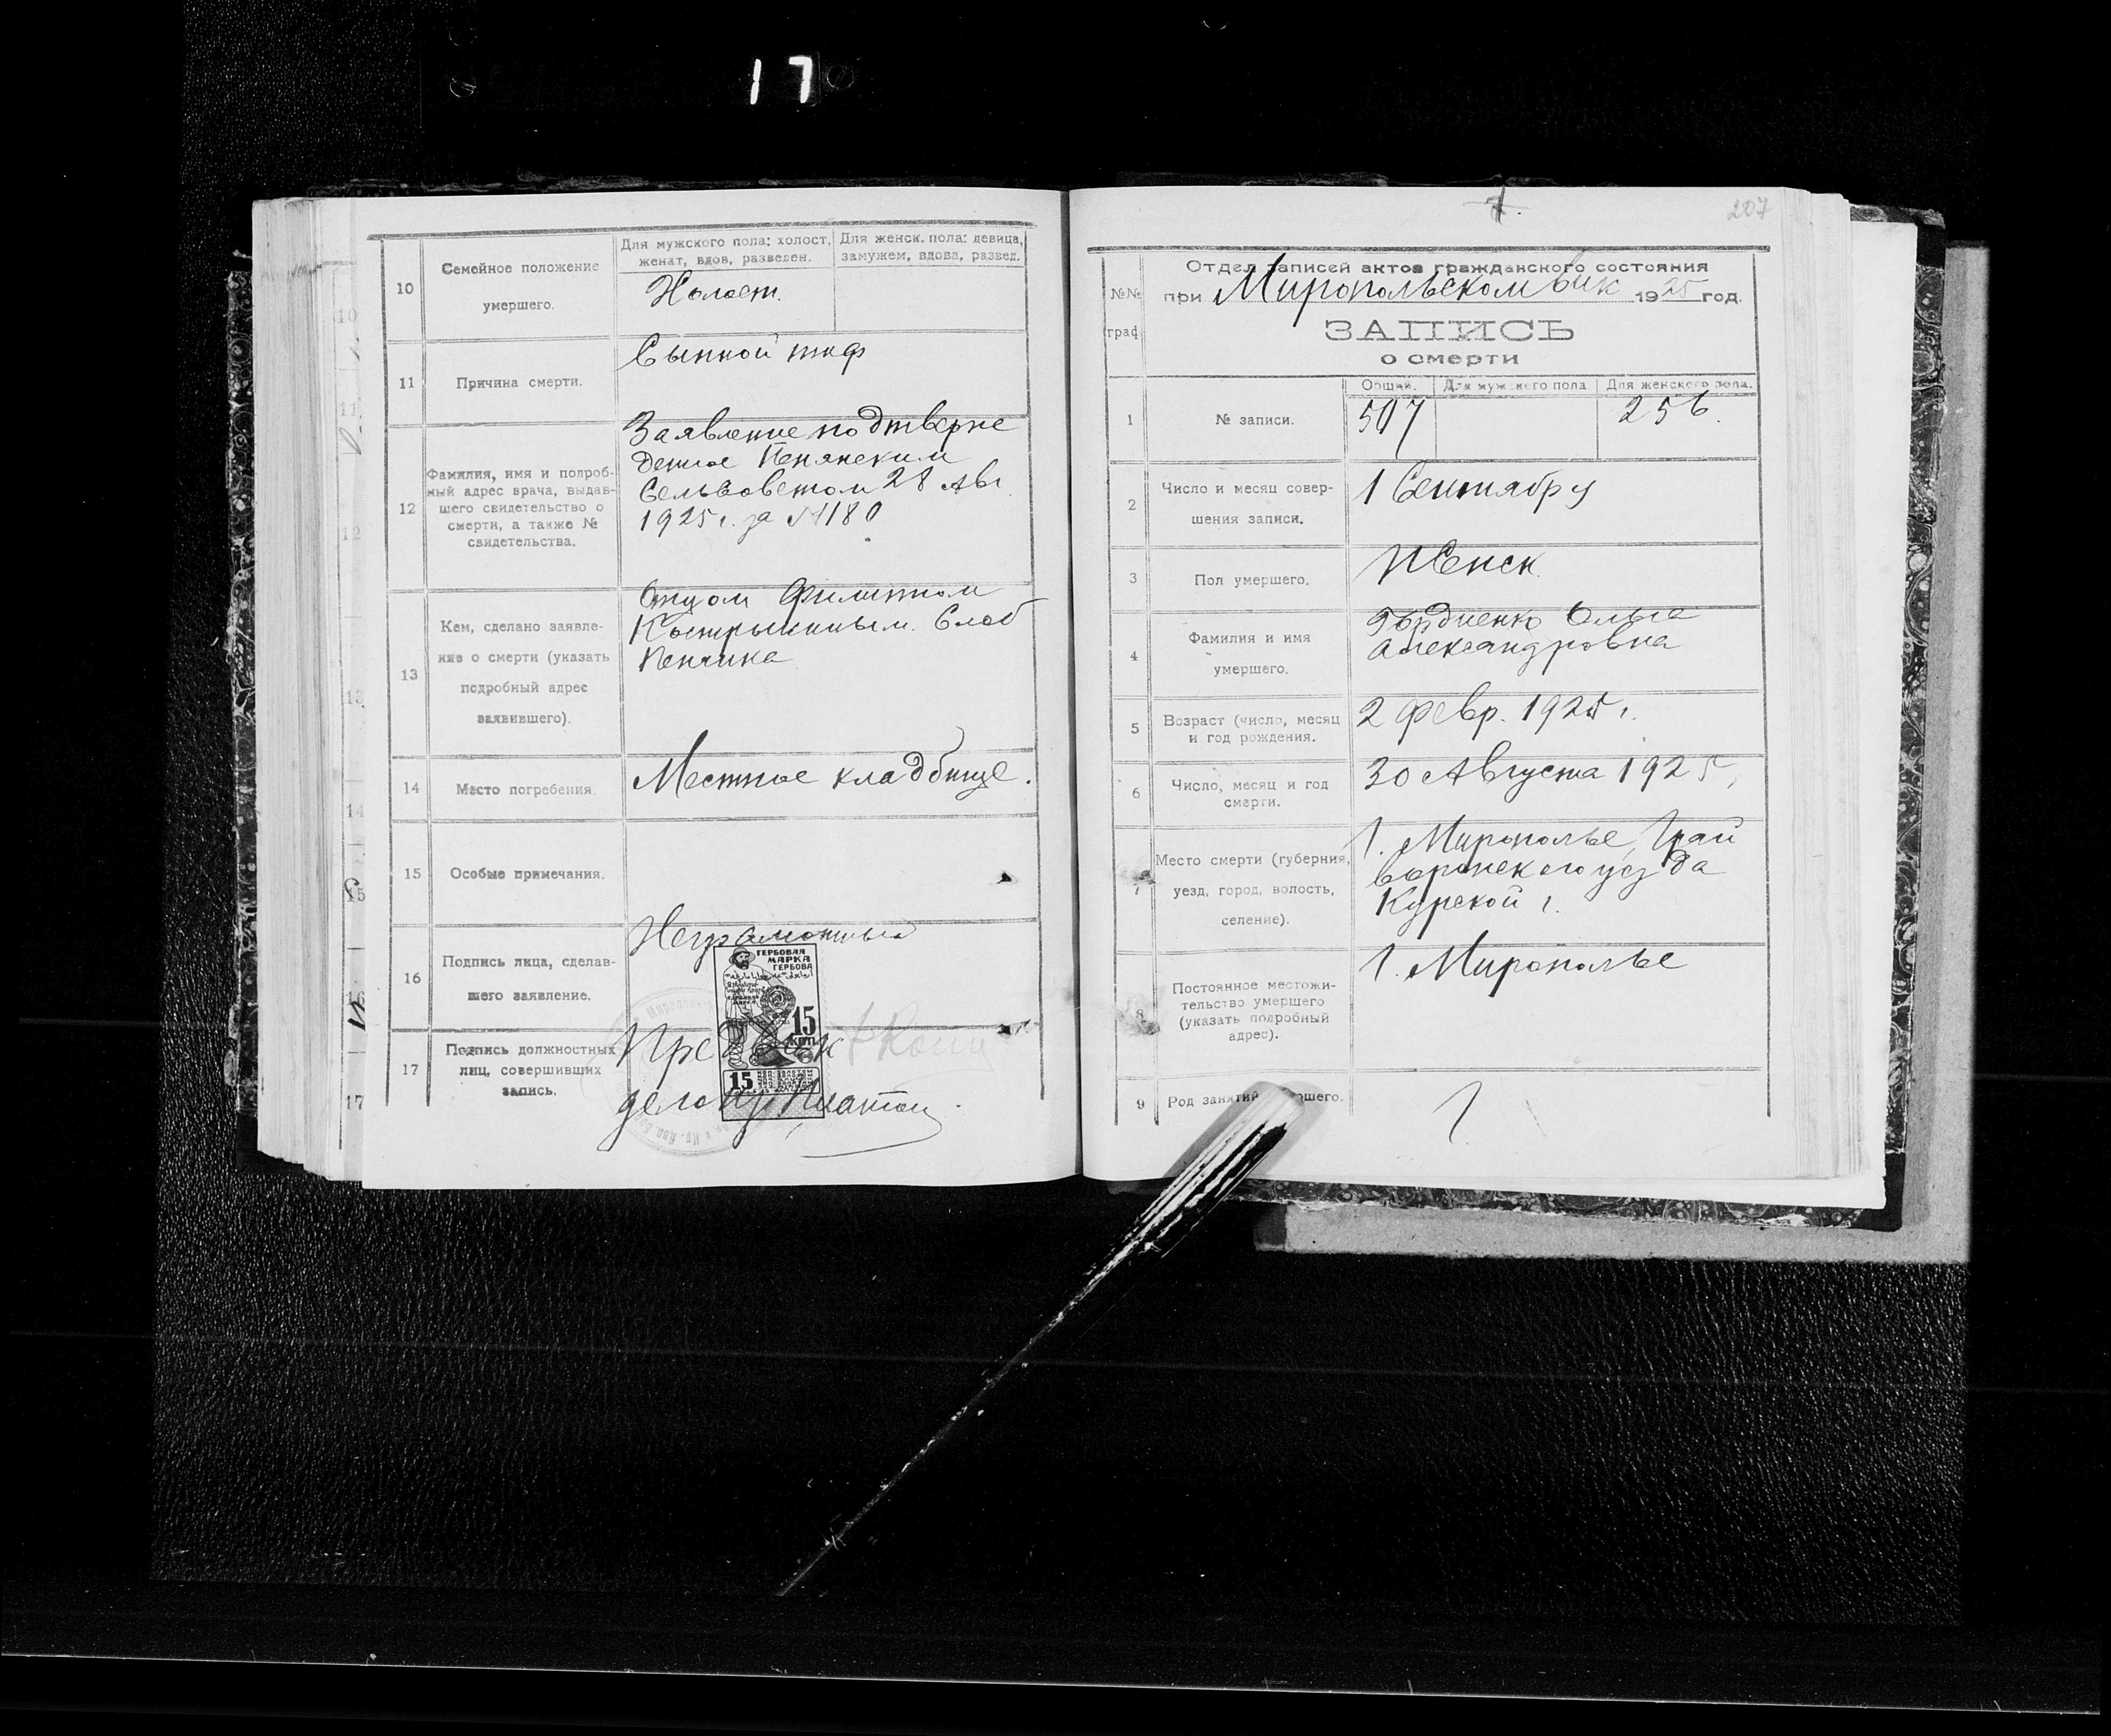 17
10
Семейное положение
умершего.
Для мужского пола: холост,
женат, вдов, разведен.
Для женск. пола: девица,
замужем, вдова, развед.
Холост.
11
Причина смерти.
Сыпной тиф
12
Фамилия, имя и подроб-
ный адрес врача, выдав-
шего свидетельство о
смерти, а также №
свидетельства.
Заявление подтверже
денное Пенянским
Сельсоветом 28 Авг
1925 г. за № 1180
13
Кем, сделано заявле-
ние о смерти (указать
подробный адрес
заявившего).
Отцом Филиппом
Костркиным. Слоб
14
Место погребения.
Местное кладбище.
15
Особые примечания.
16
Подпись лица, сделав-
шего заявление.
Неграмотный
ГЕРБОВАЯ
МАРКА
ГЕРБОВА
15
КОП
15
17
Подпись должностных
лиц, совершивших
запись.
Пред Вик
7.
207
№№
граф
Отдел записей актов гражданского состояния
при Миропольском Вик 1925 год.
ЗАПИСЬ
о смерти
1
№ записи.
Общий.
Для мужского пола
Для женского пола.
507
256.
2
Число и месяц совер-
шения записи.
1 Сентябру
3
Пол умершего.
Женск.
4
Фамилия и имя
умершего.
Ольга
Александровна
5
Возраст (число, месяц
и год рождения.
2 февр. 1925 г.
6
Число, месяц и год
смерти.
30 Августа 1925,
7
Место смерти (губерния,
уезд, город, волость,
селение).
г. Мирополье, Грай
воронского уезда
Курской г.
8
Постоянное местожи-
тельство умершего
(указать подробный
адрес).
г. Мирополье
9
Род занятий умершего.